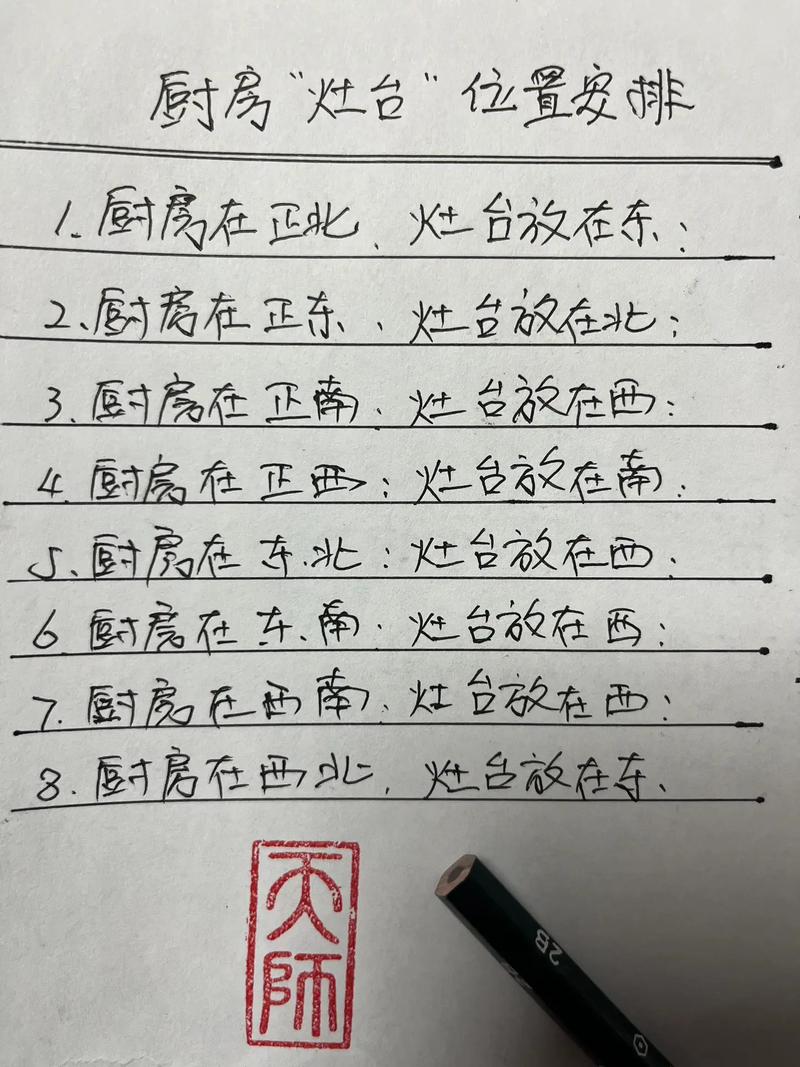 厨房“灶台”位置安排
1.厨房在正北、灶台放在东；
2、厨房在正东、灶台放在北；
3.厨房在正南、灶台放在西；
4.厨房在正西；灶台放在南；
5、厨房在东北：灶台放在西；
6.厨房在东南、灶台放在西；
7.厨房在西南、灶台放在西；
8.厨房在西北，灶台放在东、
天師
2B